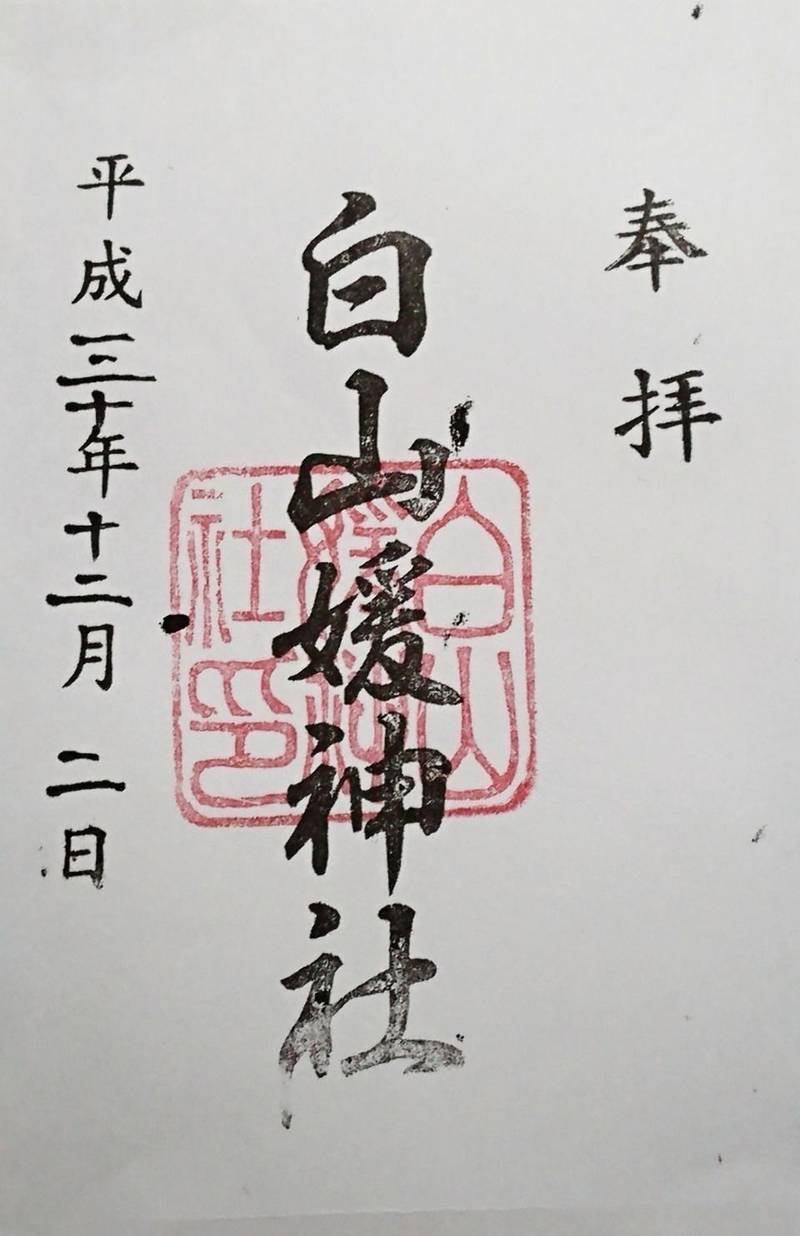 奉拝
白山媛神社
平成三十年十二月二日
白山
媛神
社印